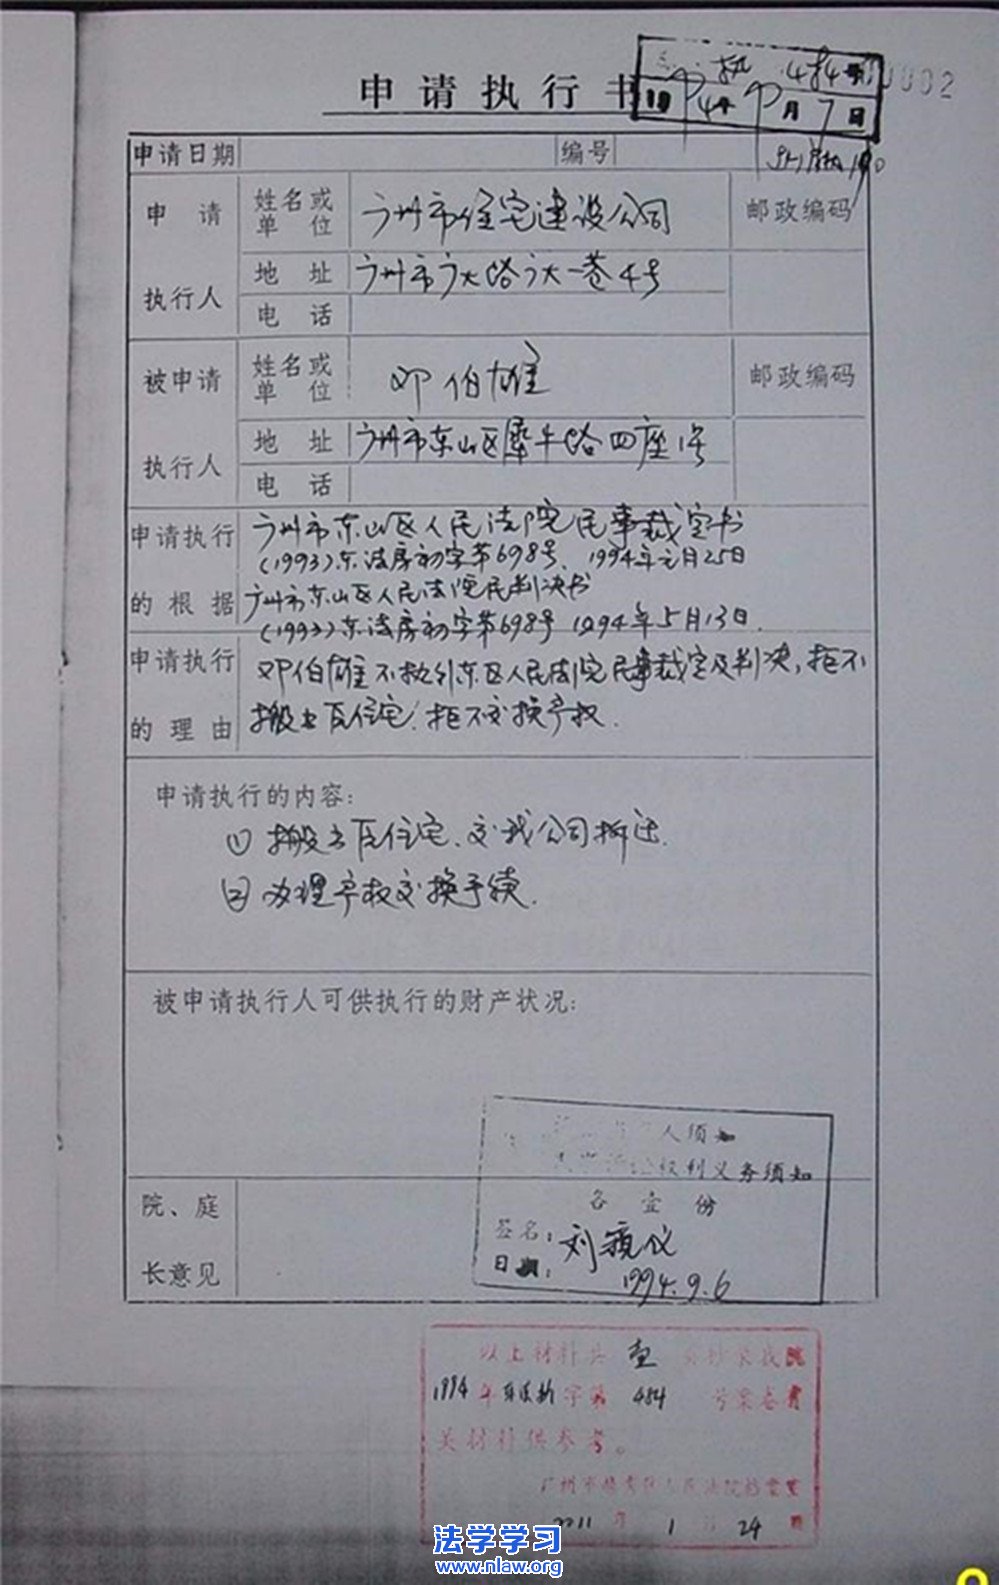 申请执行书
执 484号
1994年9月7日
0002
申请日期 编号
申请 姓名或单位 广州市住宅建设公司 邮政编码
执行人 地址 广州市广大路广大一巷4号
电话
被申请 姓名或单位 邓伯雄 邮政编码
执行人 地址 广州市东山区犀牛路四座1号
电话
申请执行 广州市东山区人民法院民事裁定书
(1993)东法房初字第698号、1994年元月25日
的根据 广州市东山区人民法院民判决书
(1993)东法房初字第698号 1994年5月13日.
申请执行 邓伯雄不执行东区人民法院民事裁定及判决,拒不
的理由 搬出 住宅,拒不交换产权.
申请执行的内容:
① 搬出 住宅、交我公司拆迁.
② 办理产权交换手续.
被申请执行人可供执行的财产状况:
人须知
权利义务须知
各壹份
签名:刘 仪
日期:1994.9.6
院、庭
长意见
以上材料共 壹 页抄录我院
1994年东法执字第 484 号案卷有
关材料供参考。
广州市越秀区人民法院档案室
2011年1月24
法学学习
www.nlaw.org